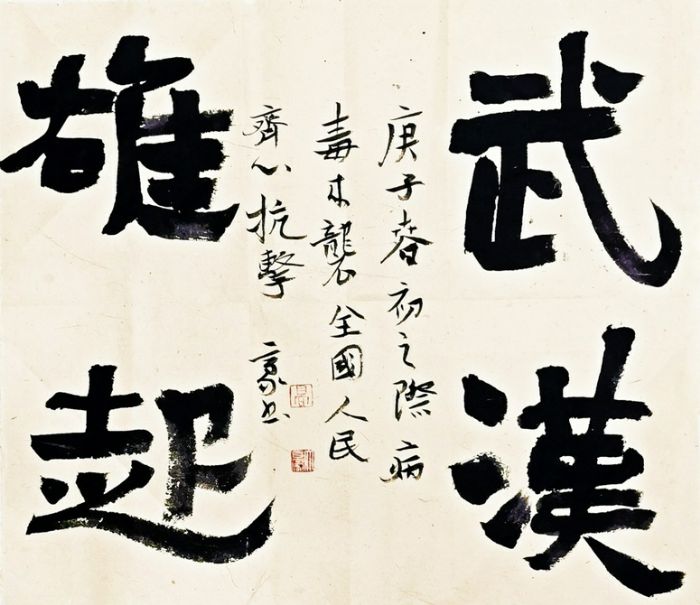 武漢
雄起
庚子春初之際病
毒来襲全國人民
齊心抗擊 书